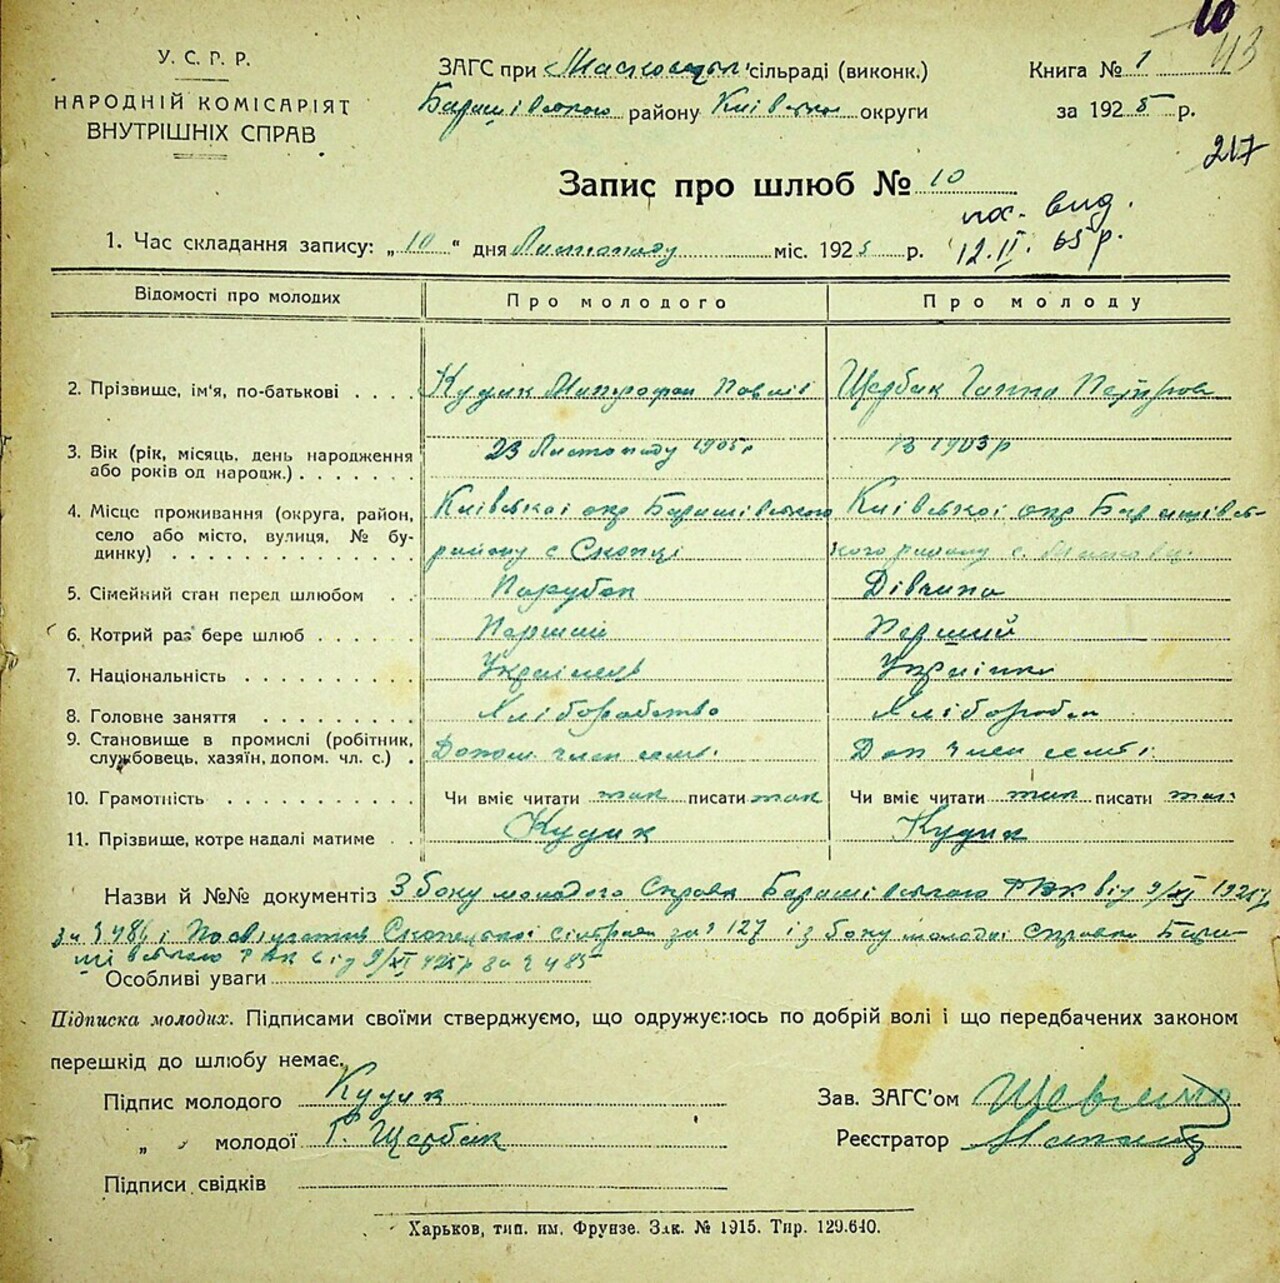 10
43
У. С. Р. Р.
НАРОДНІЙ КОМІСАРІЯТ
ВНУТРІШНІХ СПРАВ
ЗАГС при сільраді (виконк.)
Баришівського району Київської округи
Книга № 1
за 1925 р.
217
Запис про шлюб № 10
пос. вид.
12.II. 65 р.
1. Час складання запису: „ 10 " дня Листопаду міс. 1925 р.
Відомості про молодих Про молодого Про молоду
2. Прізвище, ім'я, по-батькові . . . . Кудик Митрофан Павлів Щербак Ганна Петрова
3. Вік (рік, місяць, день народження 23 Листопаду 1905 р 1903 р
або років од народж.) . . . . . . .
4. Місце проживання (округа, район, Київської окр Баришівського Київської окр Баришівсь-
село або місто, вулиця, № бу-
динку) . . . . . . . . . . . . . району с Скопці кого району с.
5. Сімейний стан перед шлюбом . . Парубок Дівчина
6. Котрий раз бере шлюб . . . . . . Перший Перший
7. Національність . . . . . . . . . . Українець Українка
8. Головне заняття . . . . . . . . . Хліборобство
9. Становище в промислі (робітник,
службовець, хазяїн, допом. чл. с.) . Допом. член семї. Доп член семї.
10. Грамотність . . . . . . . . . . . Чи вміє читати так писати так Чи вміє читати так писати так
11. Прізвище, котре надалі матиме . . Кудик Кудик
Назви й №№ документів З боку молодого Справка Баришівського РВК від 9/XI 1925 р
за № 486 і Посвідчення Скопецької сільради за № 127 і з боку молодої справка Бари-
шівського РВК від 9/XI 925 р за № 485
Особливі уваги
Підписка молодих. Підписами своїми стверджуємо, що одружуємось по добрій волі і що передбачених законом
перешкід до шлюбу немає.
Підпис молодого Кудик
„ „ молодої Г. Щербак
Зав. ЗАГС'ом Шевченко
Реєстратор
Підписи свідків
Харьков, тип. им. Фрунзе. Зак. № 1915. Тир. 129.640.